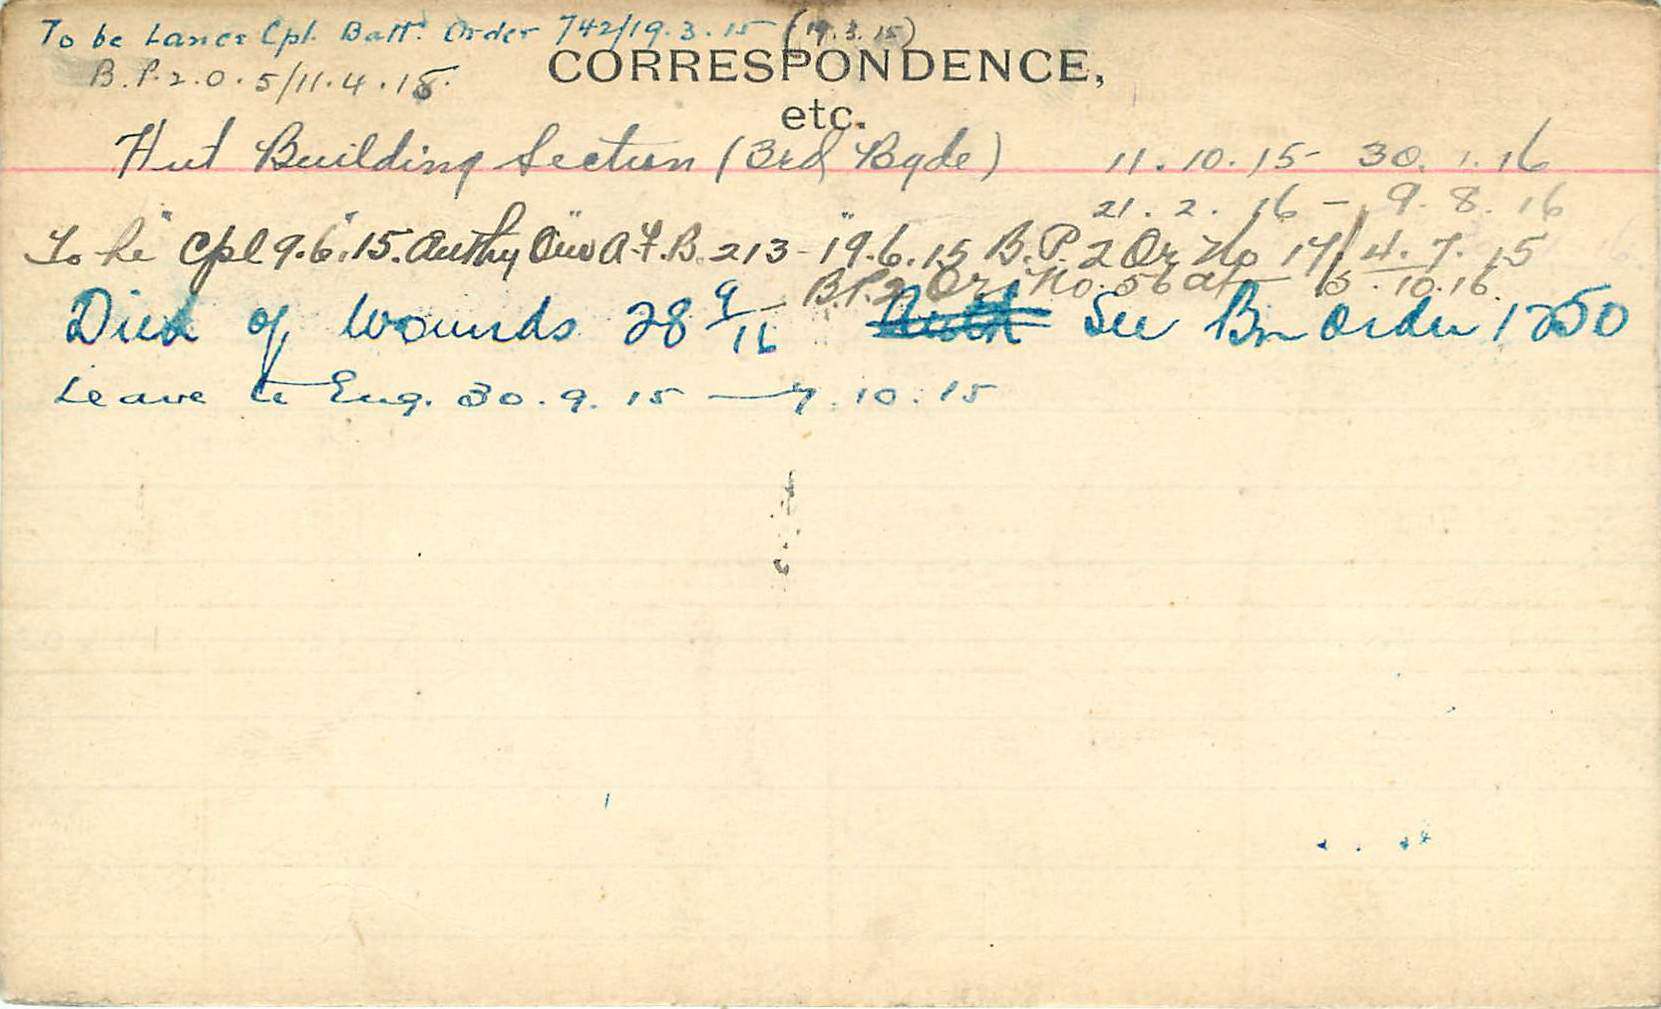 To be Lance Cpl. Batt. Order 742/19.3.15 (19.3.15)
B.P.2.O.5/11.4.15.
CORRESPONDENCE,
etc.
Hut Building Section (3rd Bgde) 11.10.15 - 30.1.16
21.2.16 - 9.8.16
To be "Cpl 9.6.15. Authy A.F.B. 213 - 19.6.15 B.P. 2 Or No 17/4.7.15
B.P.2 Or No. 56 5.10.16.
Died of Wounds 28 9/16 See Bn Order 1250
Leave to Eng. 30.9.15 — 7.10.15